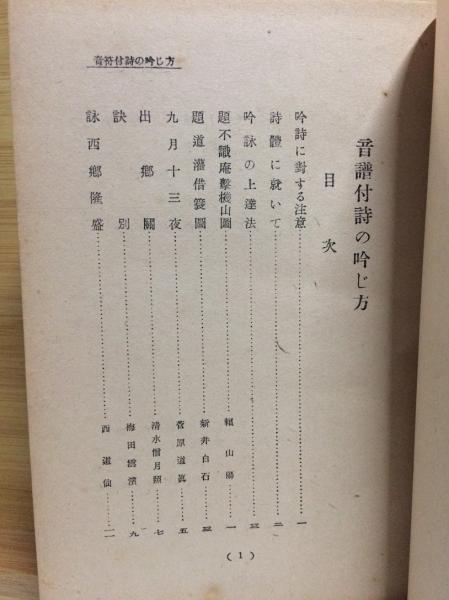 音符付詩の吟じ方
音譜付詩の吟じ方
目次
吟詩に對する注意……一
詩體に就いて……二
吟詠の上達法……三
題不識庵擊機山圖……賴山陽……一
題道灌借簑圖……新井白石……三
九月十三夜……菅原道眞……五
出鄕關……清水僧月照……七
訣別……梅田雲濱……九
詠西鄕隆盛……西道仙……一一
(1)